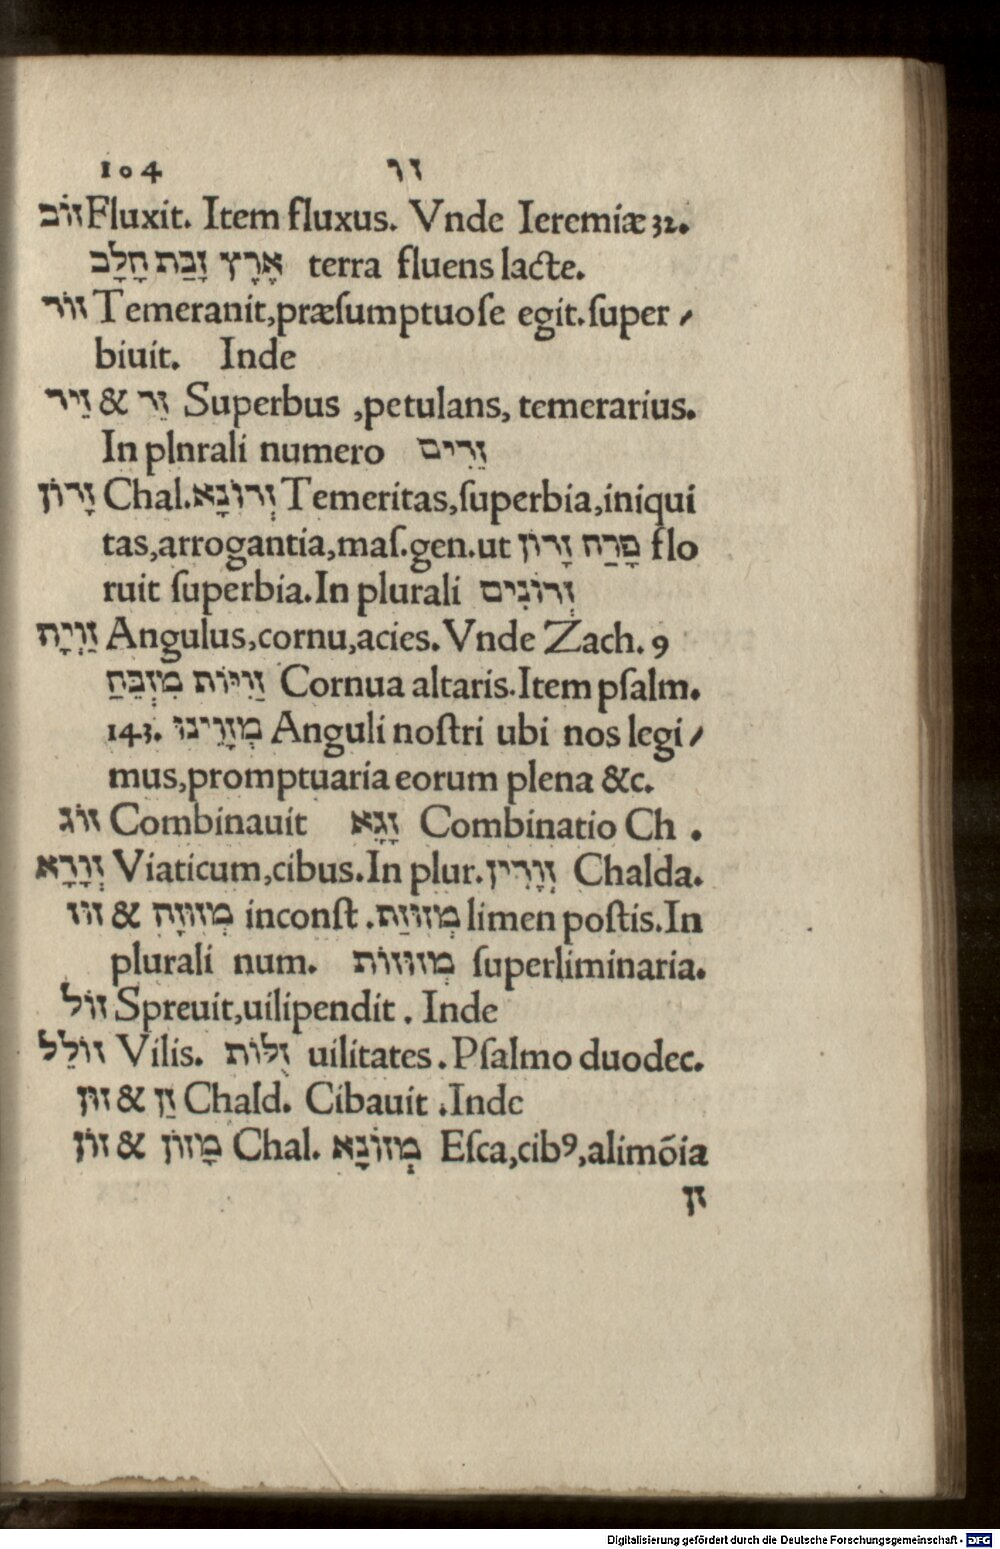 104 זו
זוֹב Fluxit. Item fluxus. Vnde Ieremiæ 32.
אֶרֶץ זָבַת חָלָב terra fluens lacte.
זוֹר Temeranit,præſumptuoſe egit.ſuper⸗
biuit. Inde
זֵיר & זֵר Superbus ,petulans, temerarius.
In plnrali numero זֵרִים
זָרוֹן Chal.זְרוֹנָא Temeritas,ſuperbia,iniqui
tas,arrogantia,maſ.gen.ut פָרַח זָרוֹן flo
ruit ſuperbia.In plurali זְרוֹנִים
זַוְיָת Angulus,cornu,acies.Vnde Zach. 9
זַוִיּוֹת מִזְבֵּחַ Cornua altaris.Item pſalm.
143. מְזָוֵינוּ Anguli noſtri ubi nos legi⸗
mus,promptuaria eorum plena &c.
זוֹג Combinauit זָגָא Combinatio Ch .
זְוָרָא Viaticum,cibus.In plur.זְוָרִין Chalda.
זוּז & מְזוּזָה inconſt .מְזוּזַת limen poſtis.In
plurali num. מְזוּזוֹת ſuperliminaria.
זוֹל Spreuit,uilipendit . Inde
זוֹלֵל Vilis. זֻלּוֹת uilitates . Pſalmo duodec.
זוּן & זַן Chald. Cibauit .Inde
זוֹן & מָזוֹן Chal. מְזוֹנָא Eſca,cibꝰ,alimõia
זן
Digitalisierung gefördert durch die Deutsche Forschungsgemeinschaft - DFG